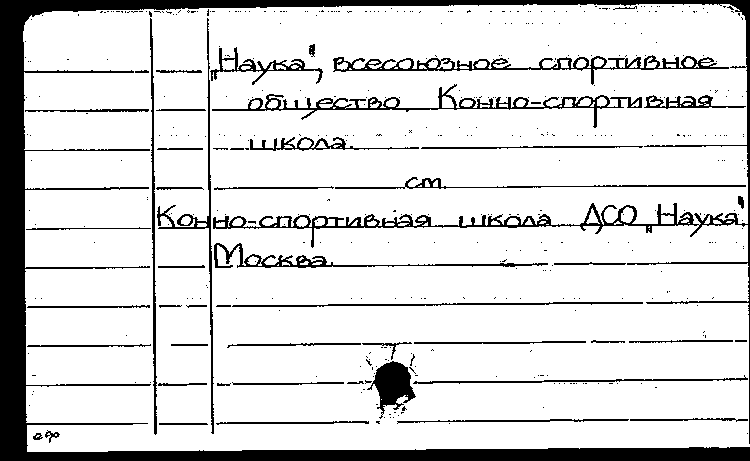 „Наука", всесоюзное спортивное
общество. Конно-спортивная
школа.
ст.
Конно-спортивная школа ДСО „Наука".
Москва.